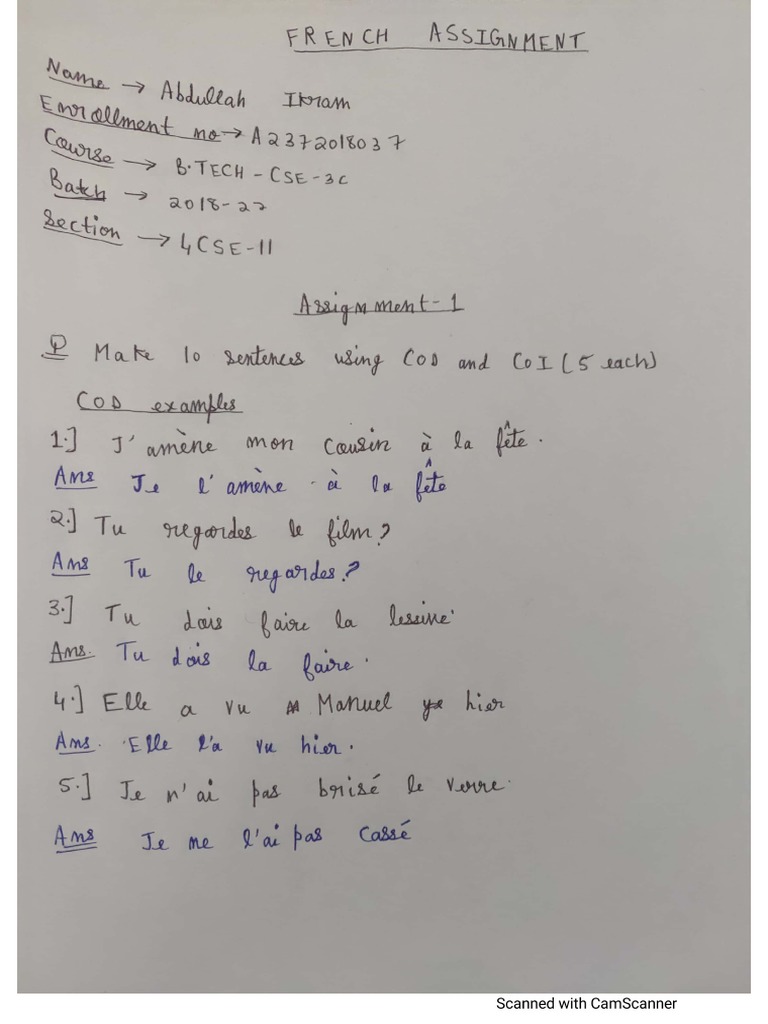 FRENCH ASSIGNMENT
Name → Abdullah Ikram
Enrollment no → A2372018037
Course → B.TECH - CSE - 3C
Batch → 2018-22
Section → 4CSE-11
Assignment - 1
Q Make 10 sentences using COD and COI (5 each)
COD examples
1.] J'amène mon cousin à la fête.
Ans Je l'amène à la fête
2.] Tu regardes le film?
Ans Tu le regardes?
3.] Tu dois faire la lessive.
Ans. Tu dois la faire.
4.] Elle a vu Manuel hier
Ans. Elle l'a vu hier.
5.] Je n'ai pas brisé le verre.
Ans Je ne l'ai pas cassé
Scanned with CamScanner